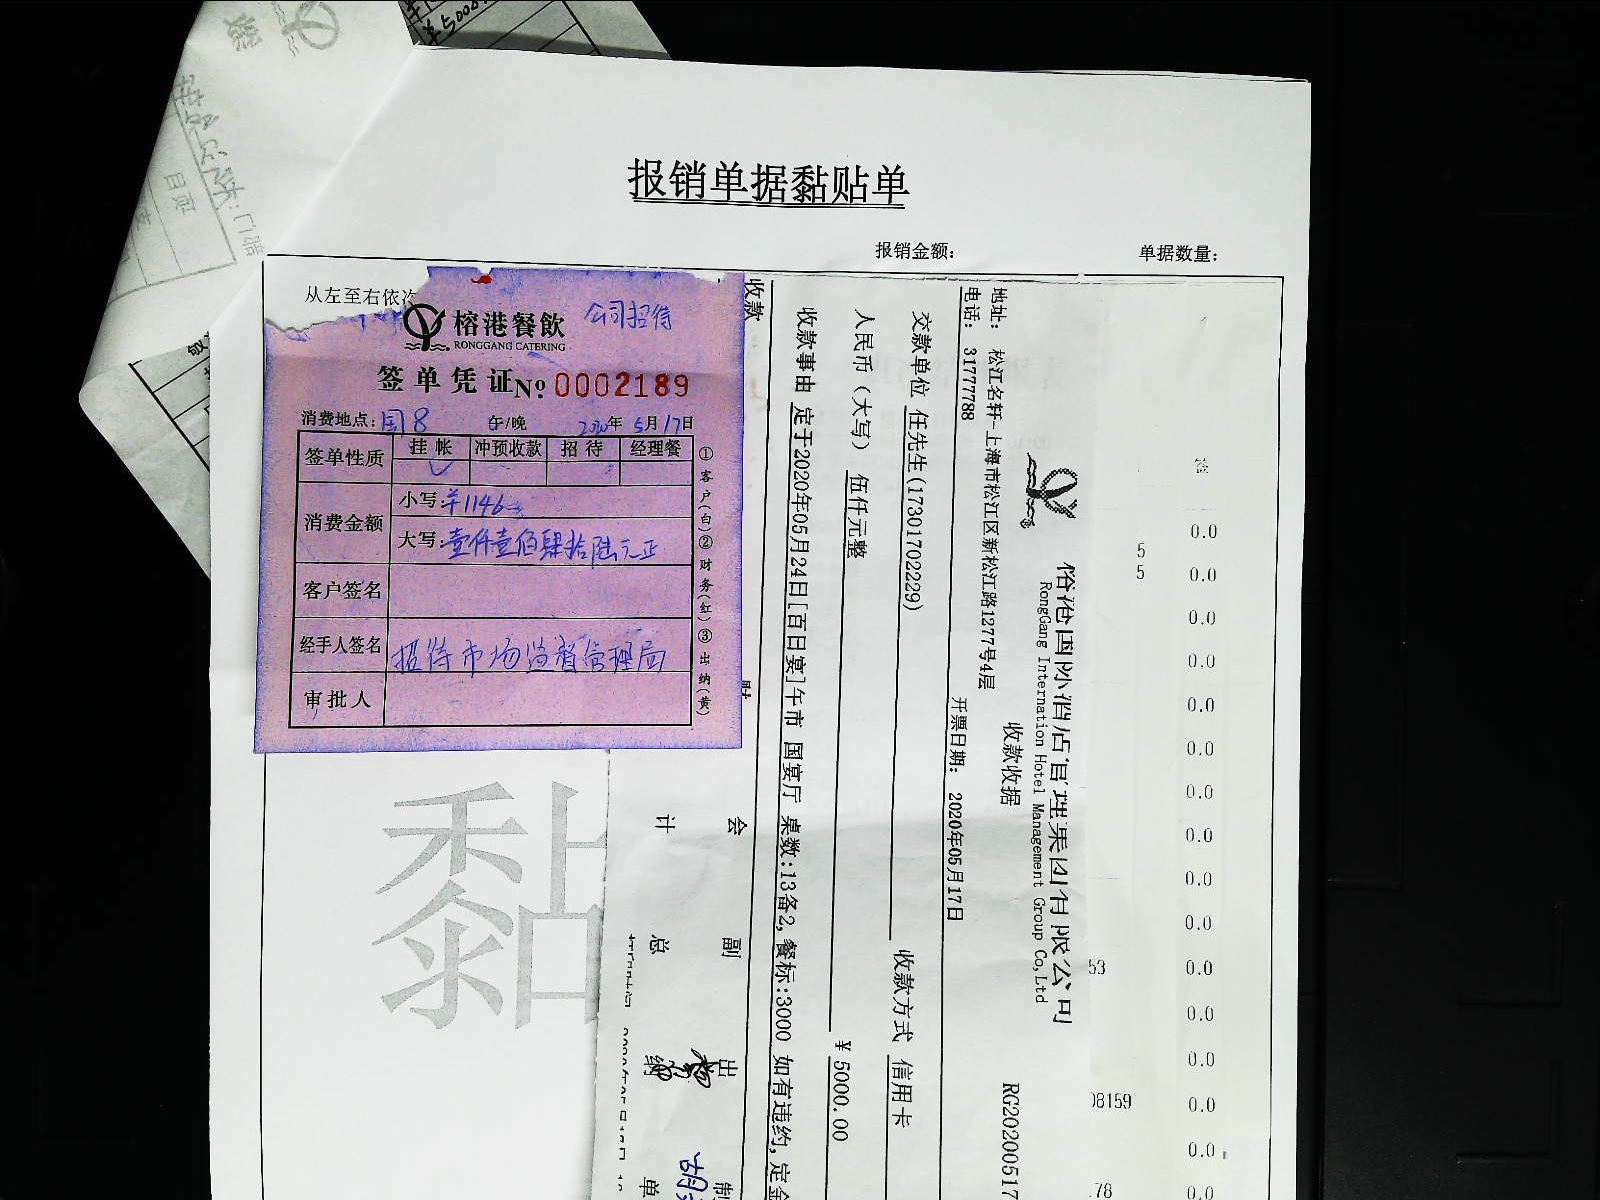 报销单据黏贴单
报销金额：
单据数量：
从左至右依次
榕港餐飲
RONGGANG CATERING
公司招待
签单凭证No: 0002189
消费地点：国8 午/晚 2020年5月17日
签单性质 挂帐 冲预收款 招待 经理餐
消费金额
小写：¥1146
大写：壹仟壹佰肆拾陆元正
客户签名
经手人签名 招待市场监督管理局
审批人
①客户(白)②财务(红)③出纳(黄)
RongGang International Hotel Management Group Co,Ltd
收款收据
RG20200517
地址： 松江名轩-上海市松江区新松江路1277号4层
电话： 31777788
开票日期： 2020年05月17日
交款单位 任先生(17301702229)
收款方式 信用卡
人民币（大写） 伍仟元整
¥ 5000.00
收款事由 定于2020年05月24日[百日宴]午市 国宴厅 桌数:13备2, 餐标:3000 如有违约, 定金
收款
会计
副总
出纳
制单
黏
5
5
53
08159
.78
0.0
0.0
0.0
0.0
0.0
0.0
0.0
0.0
0.0
0.0
0.0
0.0
0.0
0.0
0.0
0.0